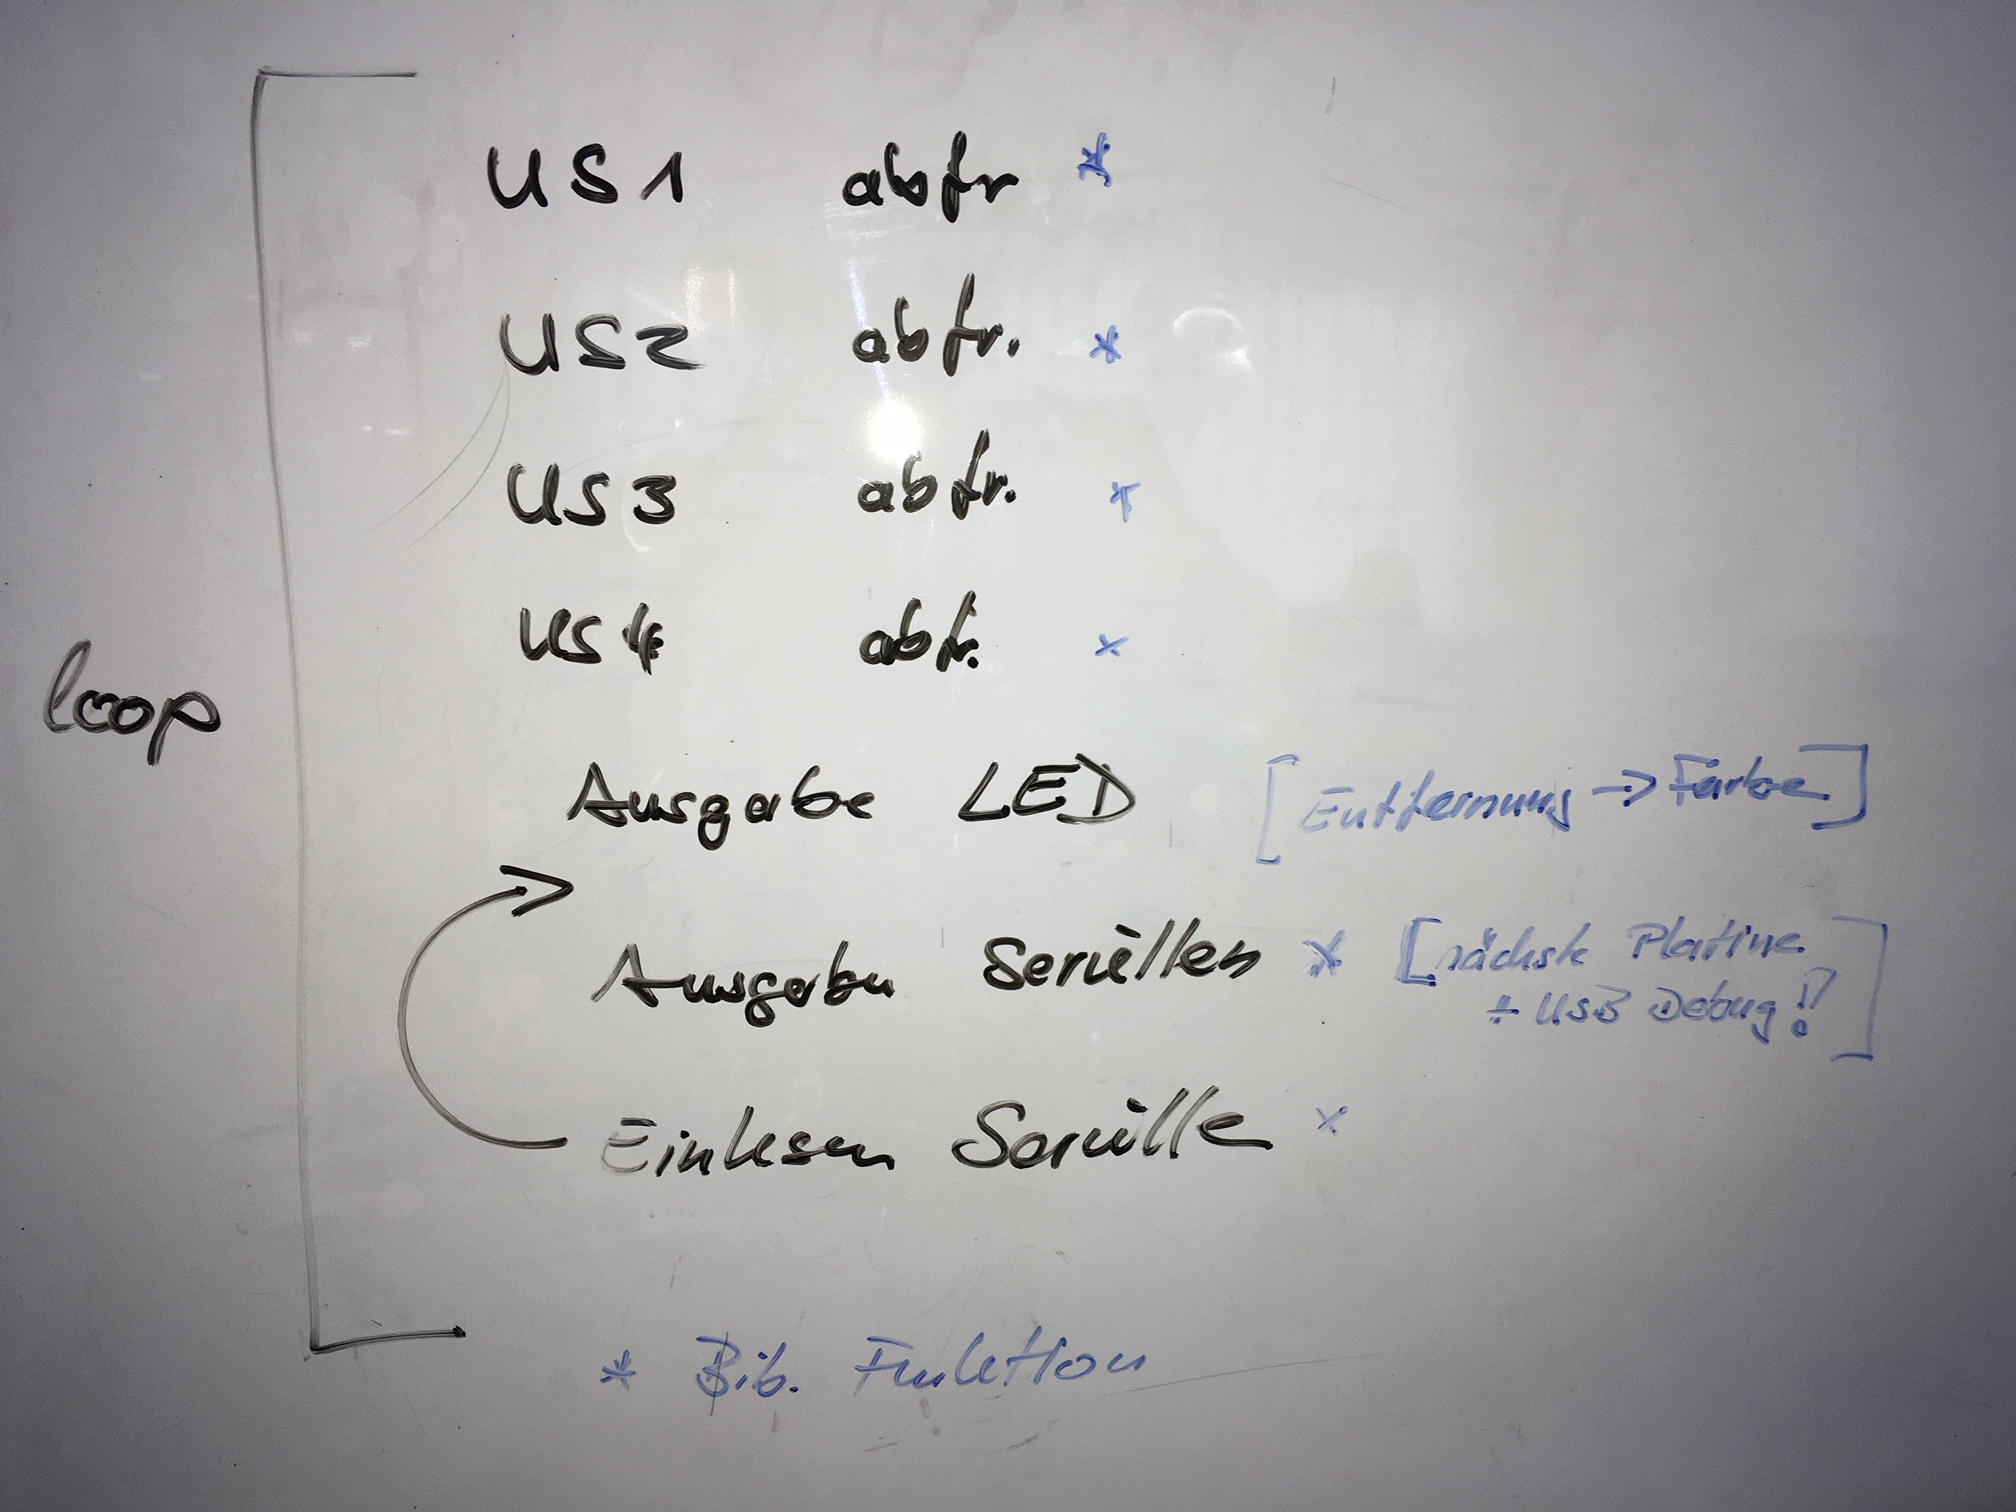 loop
US1 abfr *
US2 abfr. *
US3 abfr. *
US4 abfr. *
Ausgabe LED [Entfernung -> Farbe]
Ausgabe Seriellen * [nächste Platine
+ USB Debug!]
Einlesen Serielle *
* Bib. Funktion